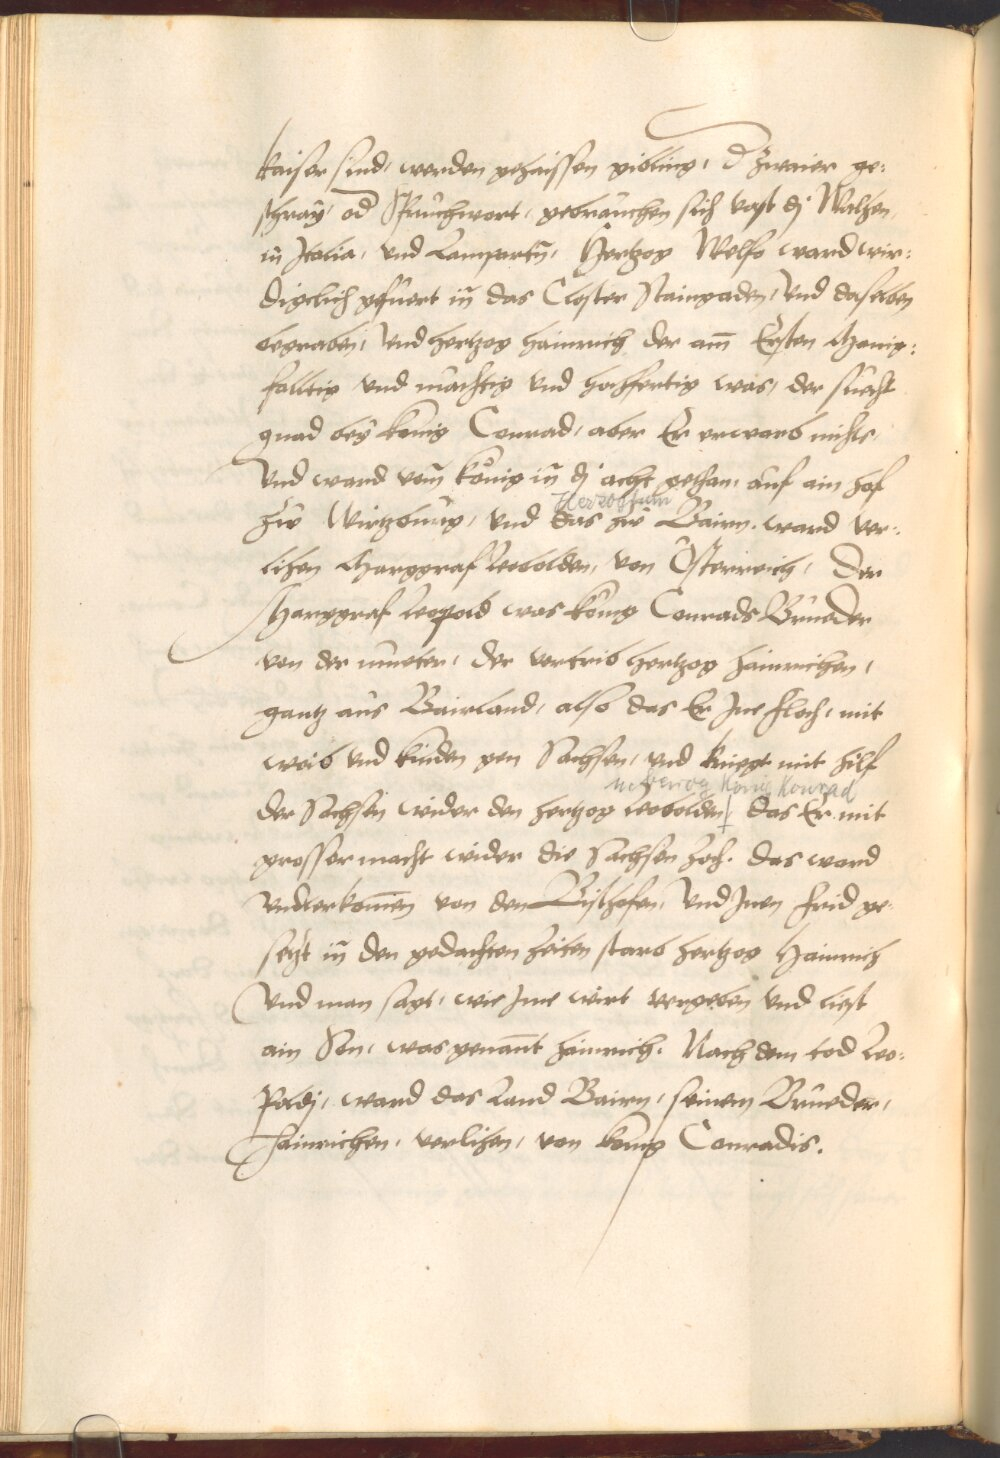 kaiser sind, werden gehaissen gibling, d zwaier ge:
schray, od Spruchwort, gebrauchen sich vast dj Walhen
in Italia, vnd Lampartn, Hertzog Welfo ward wir:
digclich gefuert in das Closter Staingaden, Vnd daselben
begraben, Vnd hertzog hainrich der am Ersten Manig:
falltig vnd machtig vnd hochfertig was, der suecht
gnad bey konig Conrad, aber Er erwarb nichts,
Vnd ward vom König in dj acht gethan, auf ain hof
Herzogtum
zw Wirtzburg, vnd das zw Bairn, ward ver:
lihen Marggraf Leobolden, von Österreich, Der
Marggraf Leopold was König Conrads Brueder
von der mueter, der vertrib hertzog hainrichen,
gantz aus Bairland, also das Er Jne floch, mit
weib vnd kinden gen Sachsen, vnd kriegt mit hilf
König Konrad
der Sachsen wider den hertzog Leobolden, das Er mit
grosser macht wider die Sachsen zoch. das ward
vnderkomen von den Bischofen, Vnd Jnen frid ge:
setzt in den gedachten zeiten starb hertzog Hainrich
Vnd man sagt, wie Jme wirt vergeben vnd liesz
ain Son, was genant hainrich. Nach dem tod Leo:
poldj, ward das Land Bairn, seinem Brueder,
Hainrichen, verlihen, von konig Conradis.